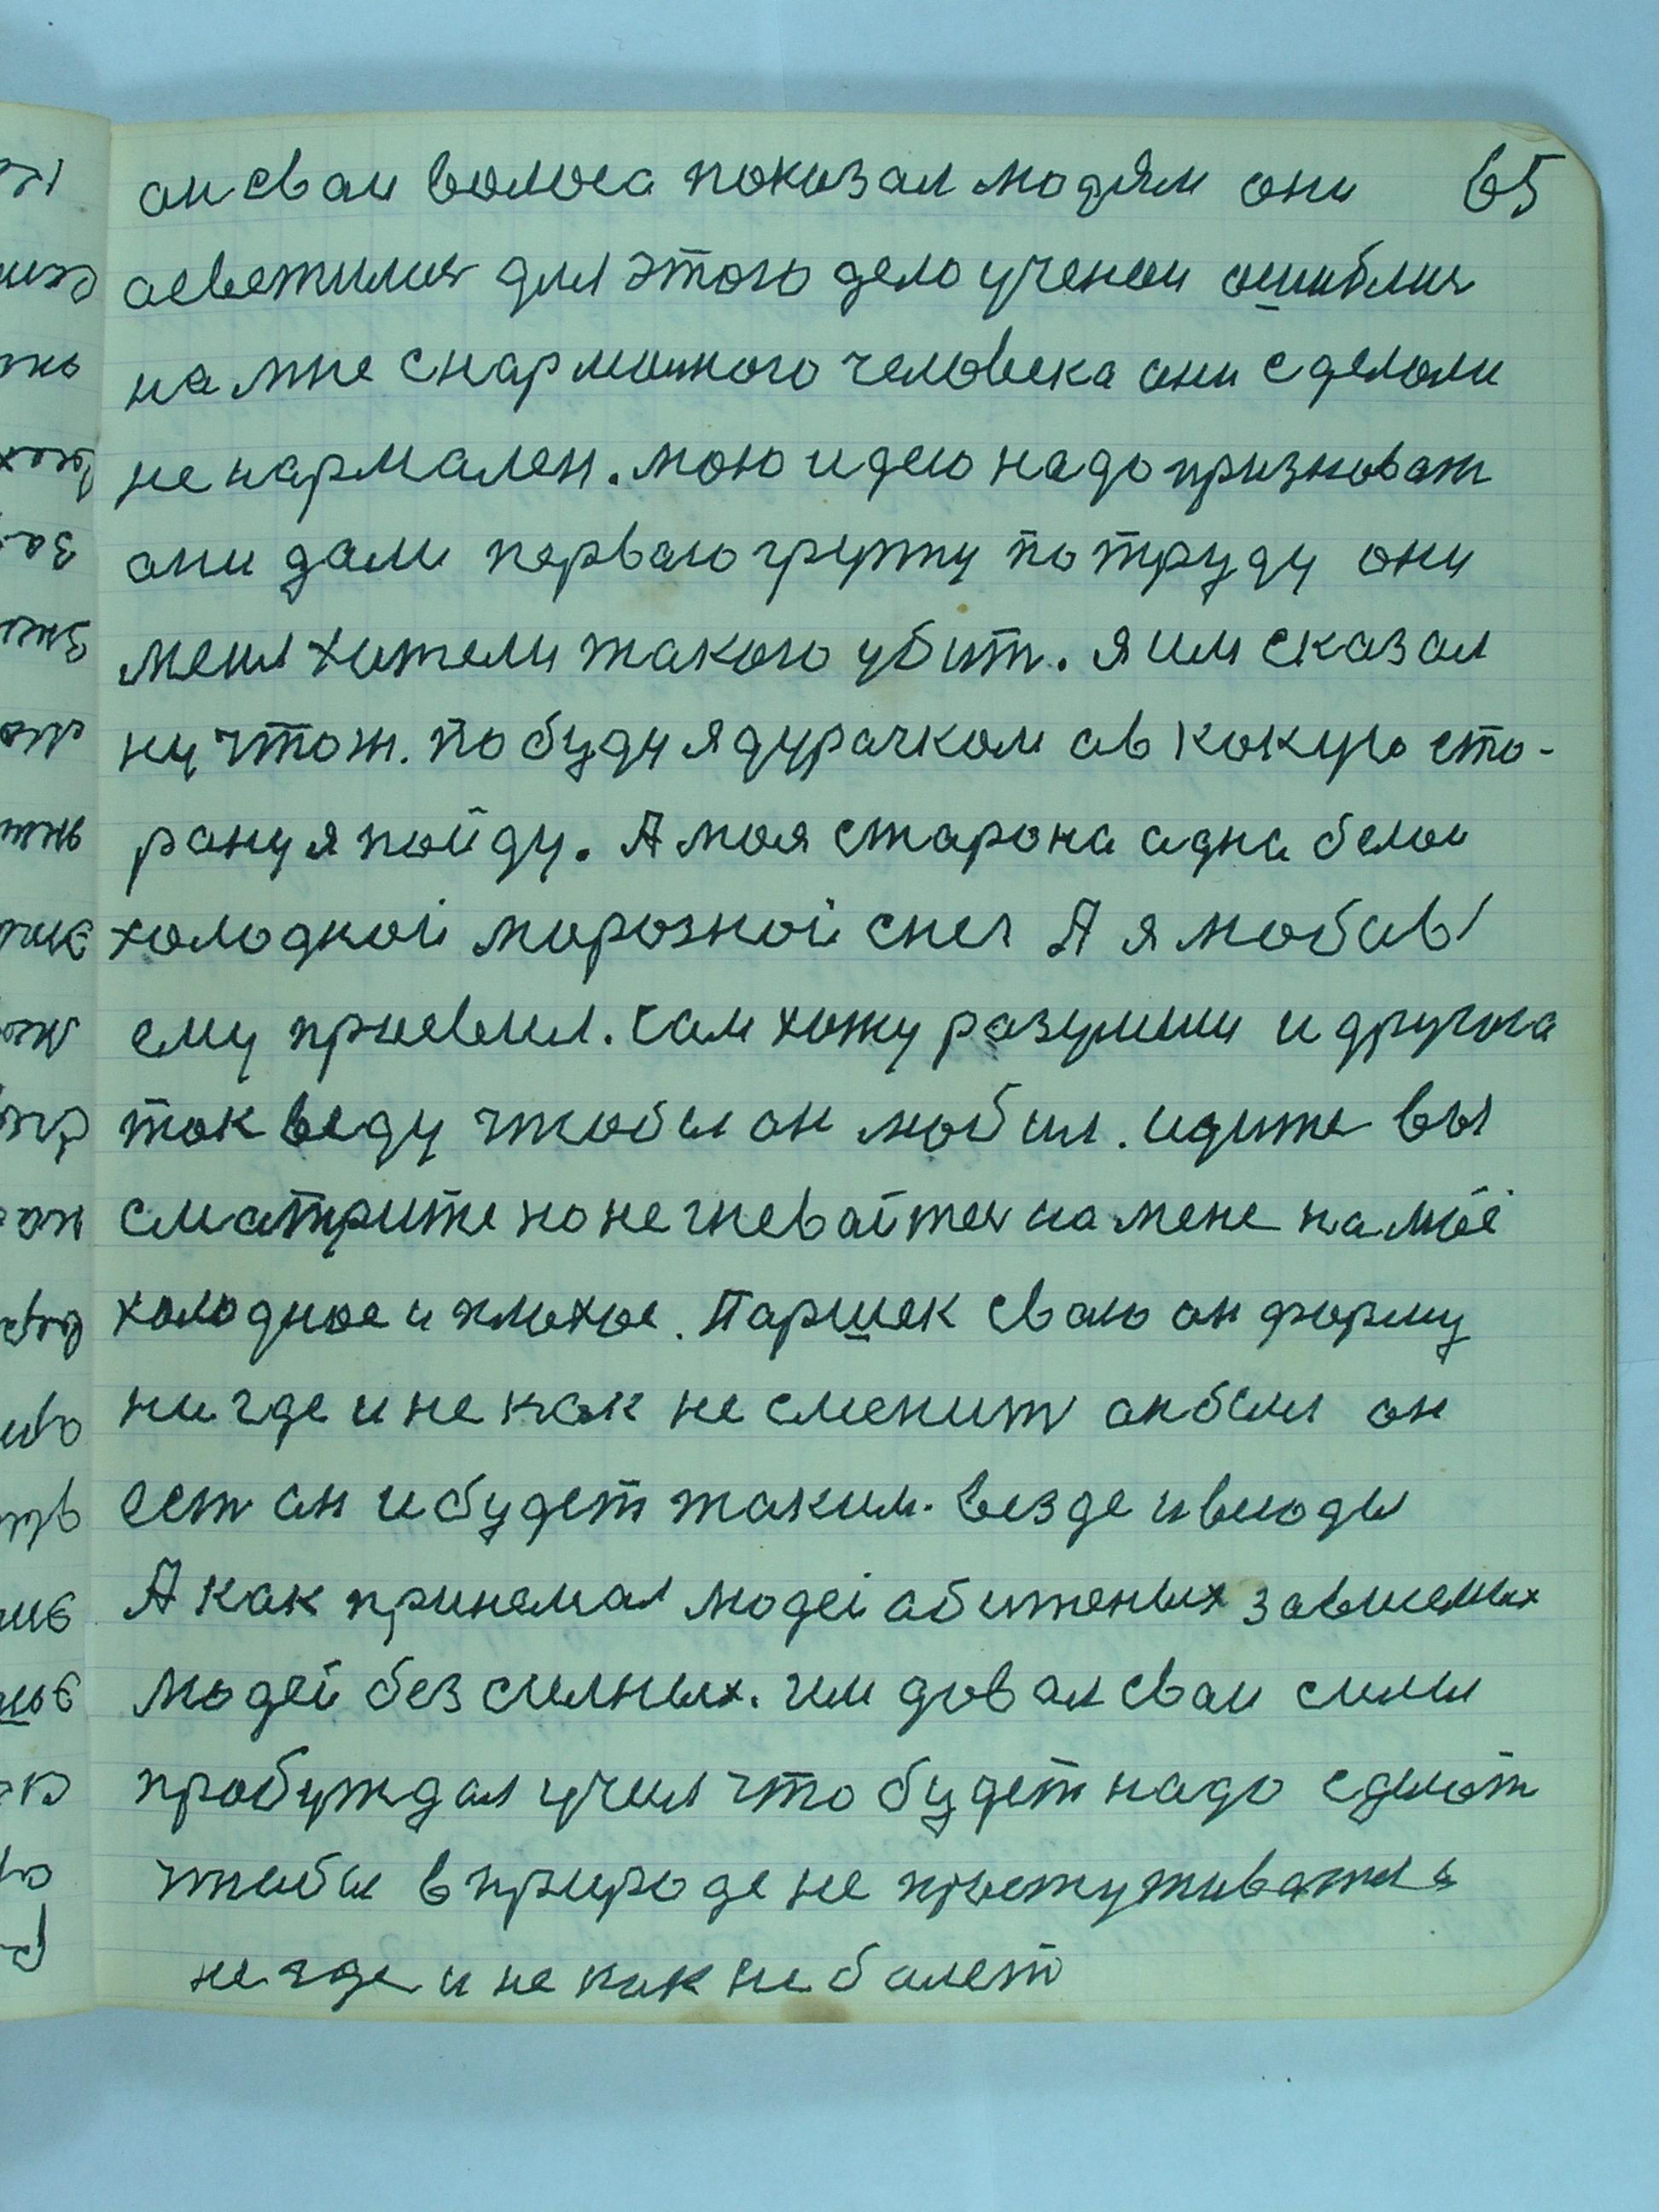 он сваи волоса показал людям они 65
асветились для этого дело ученаи ошиблис
на мне с нармалного человека они сделали
не нармален. мою идею надо признават
они дали первою группу по труду они
меня хители такого убит. я им сказал
ну что ж. побуду я дурачком а в какую сто-
рану я пойду. А моя старона адна белаи
холодной морозной снег А я любов
ему привил. сам хожу разумши и другога
так веду чтобы он любил. идите вы
сматрите но не гневайтес на мене на моё
холодное и плохое. Паршек сваю он форму
ни где и не как не сменит он был он
ест он и будет таким. везде и всюды
А как принемал людей абиженых забытых
людей безсилных. им довал сваи силы
пробуждал учил что будет надо сделат
чтобы в природе не простуживатся
не где и не как не болет